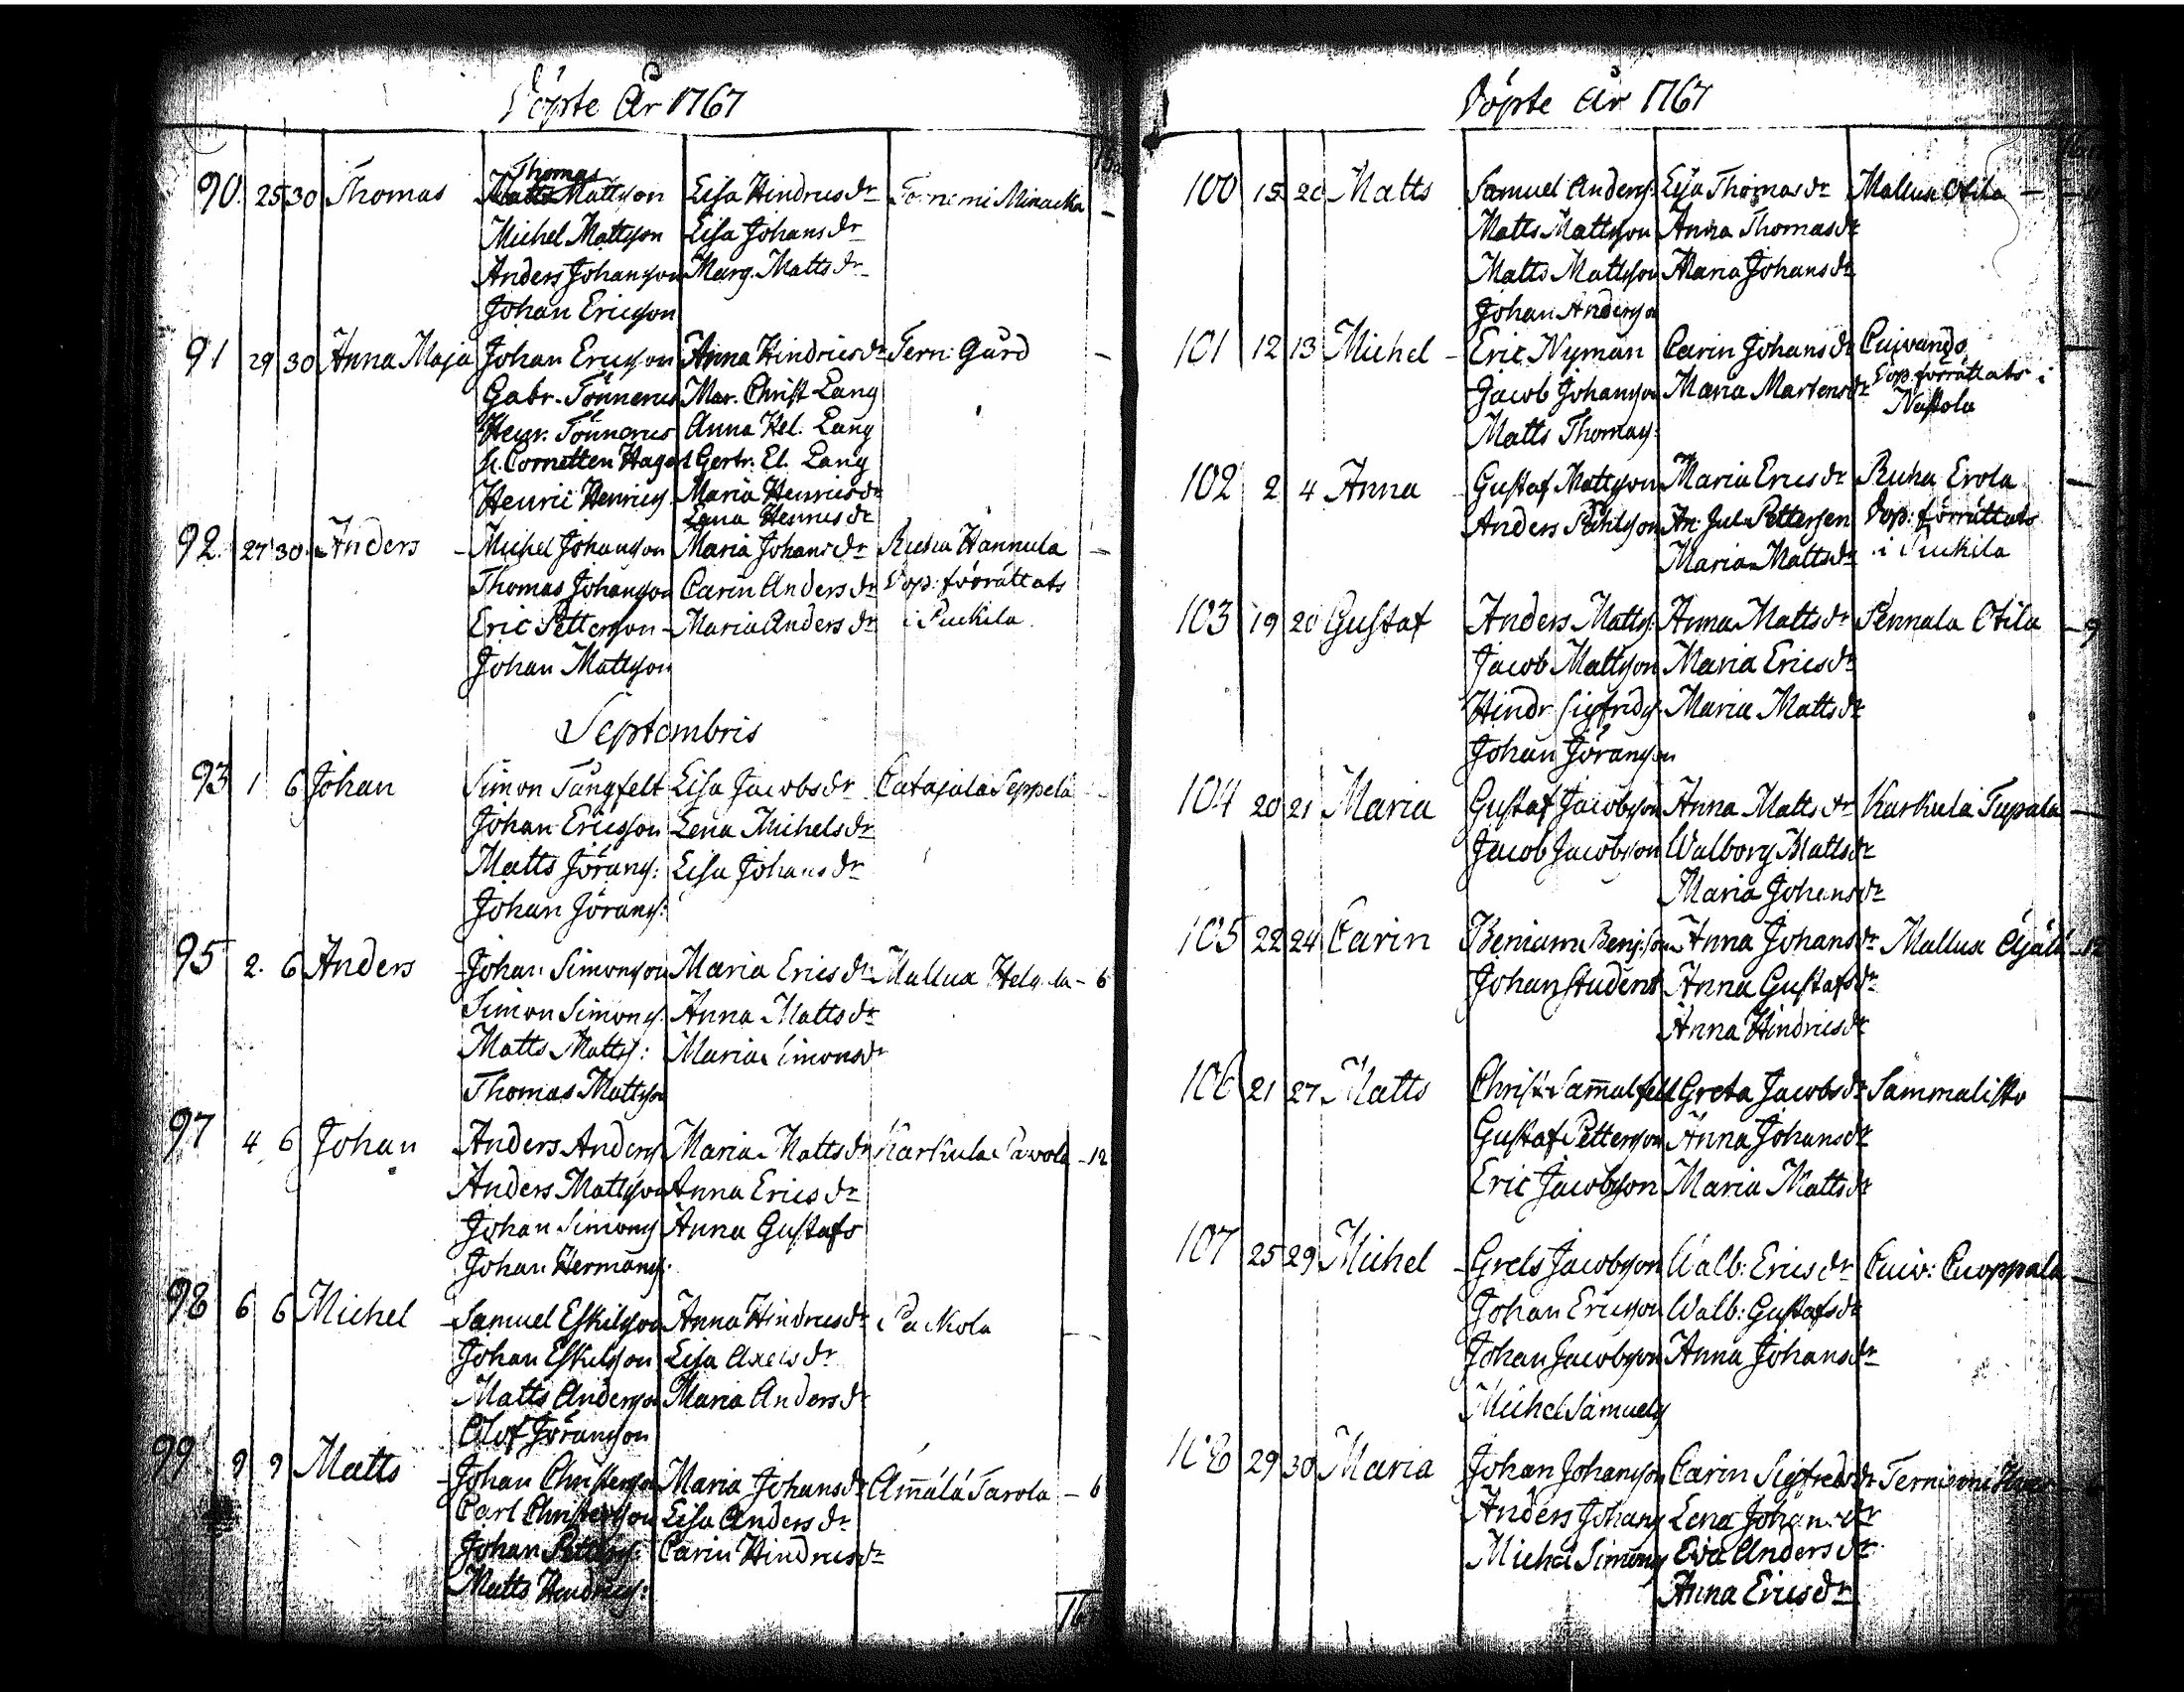 Döpte År 1767
90. 25 30 Thomas Thomas Mattsson Lisa Hindricsdr
Michel Mattsson Lisa Johansdr
Anders Johansson Marg. Mattsdr
Johan Ericsson
91 29 30 Anna Maja Johan Ericsson Anna Hindricsdr Tern: Gård –
Gabr. Tönnerus Mar. Christ Lang
Henr. Tönnerus Anna Hel. Lang
H. Cornetten Gertr. El. Lang
Henric Henrics. Maria Henricsdr
Lena Henricsdr
92. 27 30 Anders Michel Johansson Maria Johansdr Ruha Hannula –
Thomas Johansson Carin Andersdr Dop: förrättats
Eric Pettersson Maria Andersdr i Puckila
Johan Mattsson
Septembris
93 1 6 Johan Simon Lisa Jacobsdr Catajala Seppelä
Johan Ericsson Lena Michelsdr
Matts Jörans: Lisa Johansdr
Johan Jörans:
95 2. 6 Anders Johan Simonsson Maria Ericsdr Mallua – 6
Simon Simons. Anna Mattsdr
Matts Matts: Maria Simonsdr
Thomas Mattsson
97 4 6 Johan Anders Anders Maria Mattsdr Karkula Pavola – 12
Anders Mattsson Anna Ericsdr
Johan Simons Anna Gustafs
Johan Hermans:
98 6 6 Michel Samuel Eskilsson Anna Hindricsdr
Johan Eskilsson Lisa Axelsdr
Matts Andersson Maria Andersdr
Olof Jöransson
99 9 9 Matts Johan Christersson Maria Johansdr Am̄älä Tarola – 6
Carl Christersson Lisa Andersdr
Johan Petters: Carin Hindricsdr
Matts Hindrics:
16
Döpte År 1767
100 15 20 Matts Samuel Anders: Lisa Thomasdr Mallua Otila –
Matts Mattsson Anna Thomasdr
Matts Mattsson Maria Johansdr
Johan Andersson
101 12 13 Michel Eric Nyman Carin Johansdr Cuivando
Jacob Johansson Maria Martensdr Dop. förrättats i
Matts Thomas: Nastola
102 2 4 Anna Gustaf Mattsson Maria Ericsdr Ruha Erola –
Anders Påhlsson An: Jul. Pettersen Dop: förrättats
Maria Mattsdr i Puckila
103 19 20 Gustaf Anders Matts: Anna Mattsdr Pennala Otila – 9
Jacob Mattsson Maria Ericsdr
Hindr Sigfrids. Maria Mattsdr
Johan Jöransson
104 20 21 Maria Gustaf Jacobsson Anna Mattsdr Karkula Tupala –
Jacob Jacobsson Walborg Mattsdr
Maria Johansdr
105 22 24 Carin Beniam Benj:son Anna Johansdr Mallua – 12
Johan Student Anna Gustafsdr
Anna Hindricsdr
106 21 27 Matts Christ. Sam̄alfelt Greta Jacobsdr Sammalisto –
Gustaf Pettersson Anna Johansdr
Eric Jacobsson Maria Mattsdr
107 25 29 Michel Grels Jacobsson Walb: Ericsdr Cuiv: Cuoppala –
Johan Ericsson Walb: Gustafsdr
Johan Jacobsson Anna Johansdr
Michel Samuels
108 29 30 Maria Johan Johansson Carin Sigfredsdr
Anders Johans Lena Johansdr
Michel Simons Eva Andersdr
Anna Ericsdr